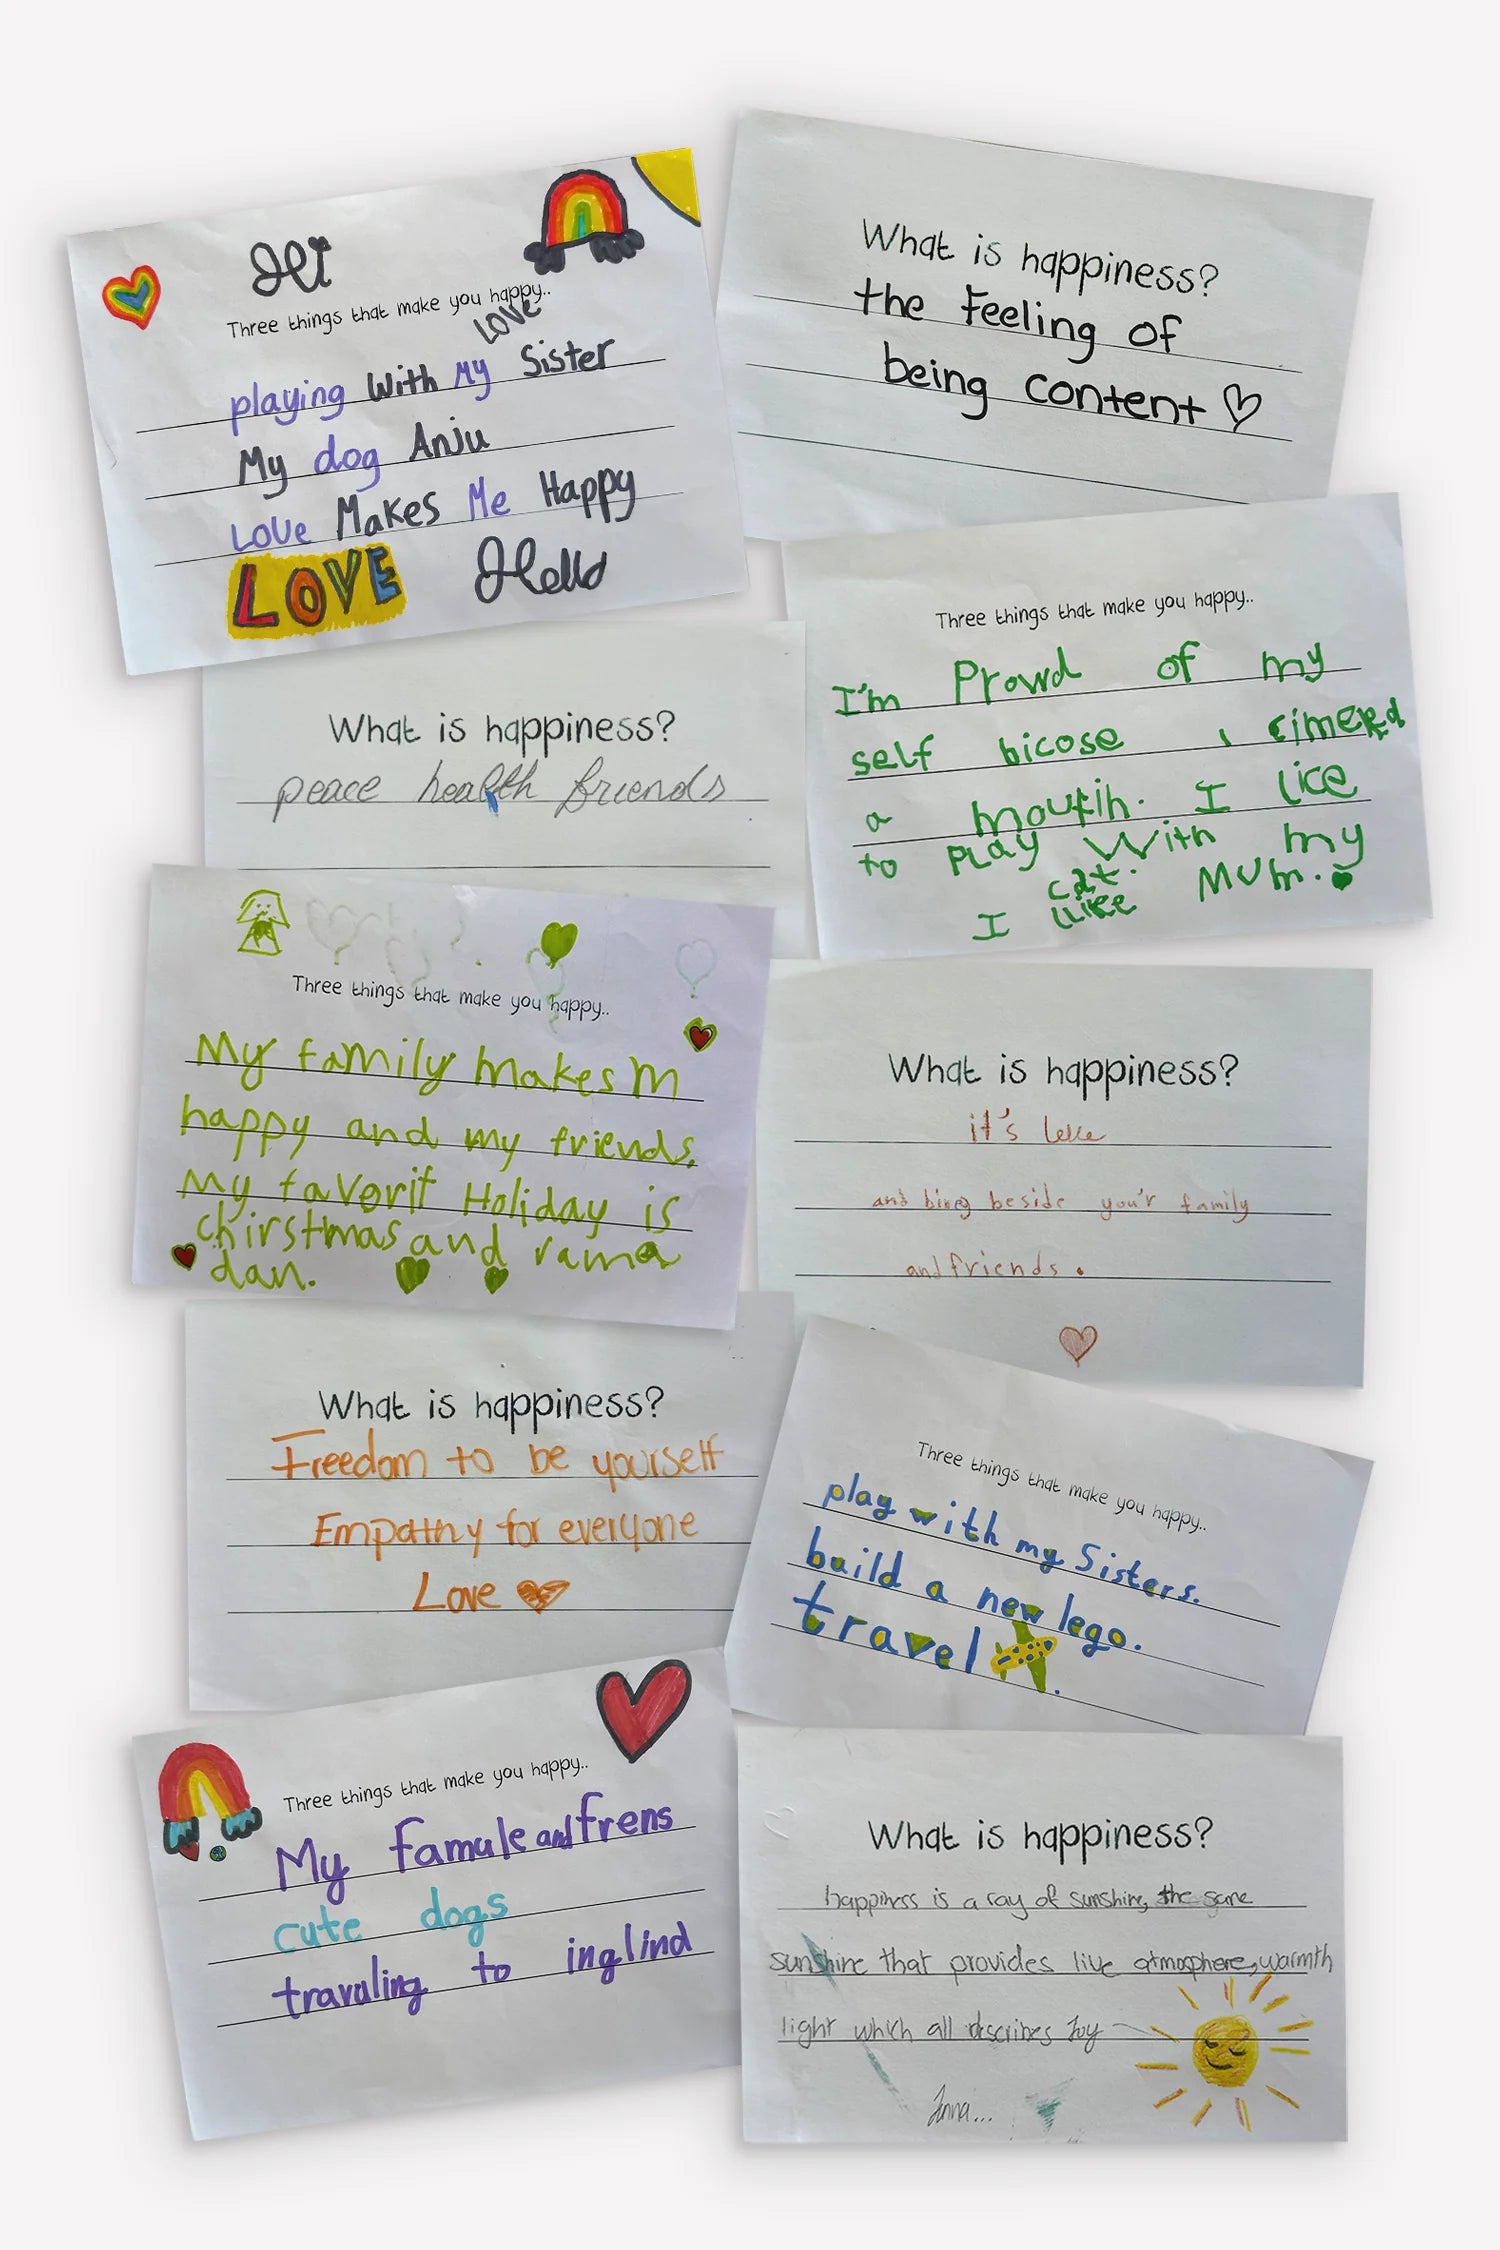 Hi
Three things that make you happy..
love
playing With My Sister
My dog Anju
Love Makes Me Happy
LOVE Hello
What is happiness?
the feeling of
being content
What is happiness?
peace health friends
Three things that make you happy..
I'm Prowd of my
self bicose I climerd
a moutin. I lice
to PLay With my
cat.
I like MUM.
Three things that make you happy..
My family makes m
happy and my friends.
My favorit Holiday is
chirstmas and rama
dan.
What is happiness?
it's
and bing beside you'r family
and friends.
What is happiness?
Freedom to be yourself
Empathy for everyone
Love
Three things that make you happy..
play with my Sisters.
build a new lego.
travel .
Three things that make you happy..
My famule and frens
cute dogs
travuling to inglind
What is happiness?
happiness is a ray of sunshine, the same
sunshine that provides live atmosphere, warmth
light which all describes Joy